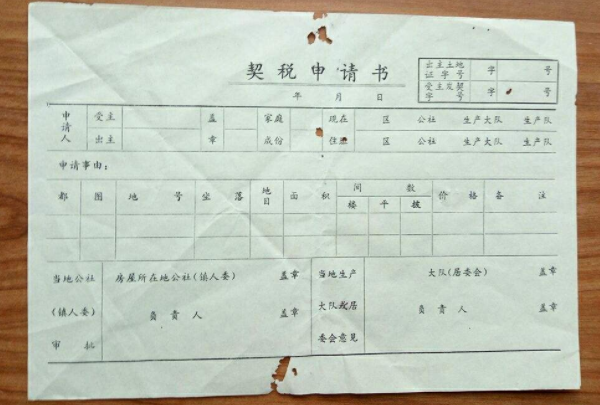 契税申请书
年 月 日
出主土地证字号 字 号
受主及契字号 字 号
申请人 受主 盖章 家庭成份 现在住址 区 公社 生产大队 生产队
出主 区 公社 生产大队 生产队
申请事由:
都 图 地号 坐落 地目 面积 间数 价格 备注
楼 平 披
当地公社(镇人委)审批 房屋所在地公社(镇人委) 盖章 当地生产大队或居委会意见 大队(居委会) 盖章
负责人 盖章 负责人 盖章